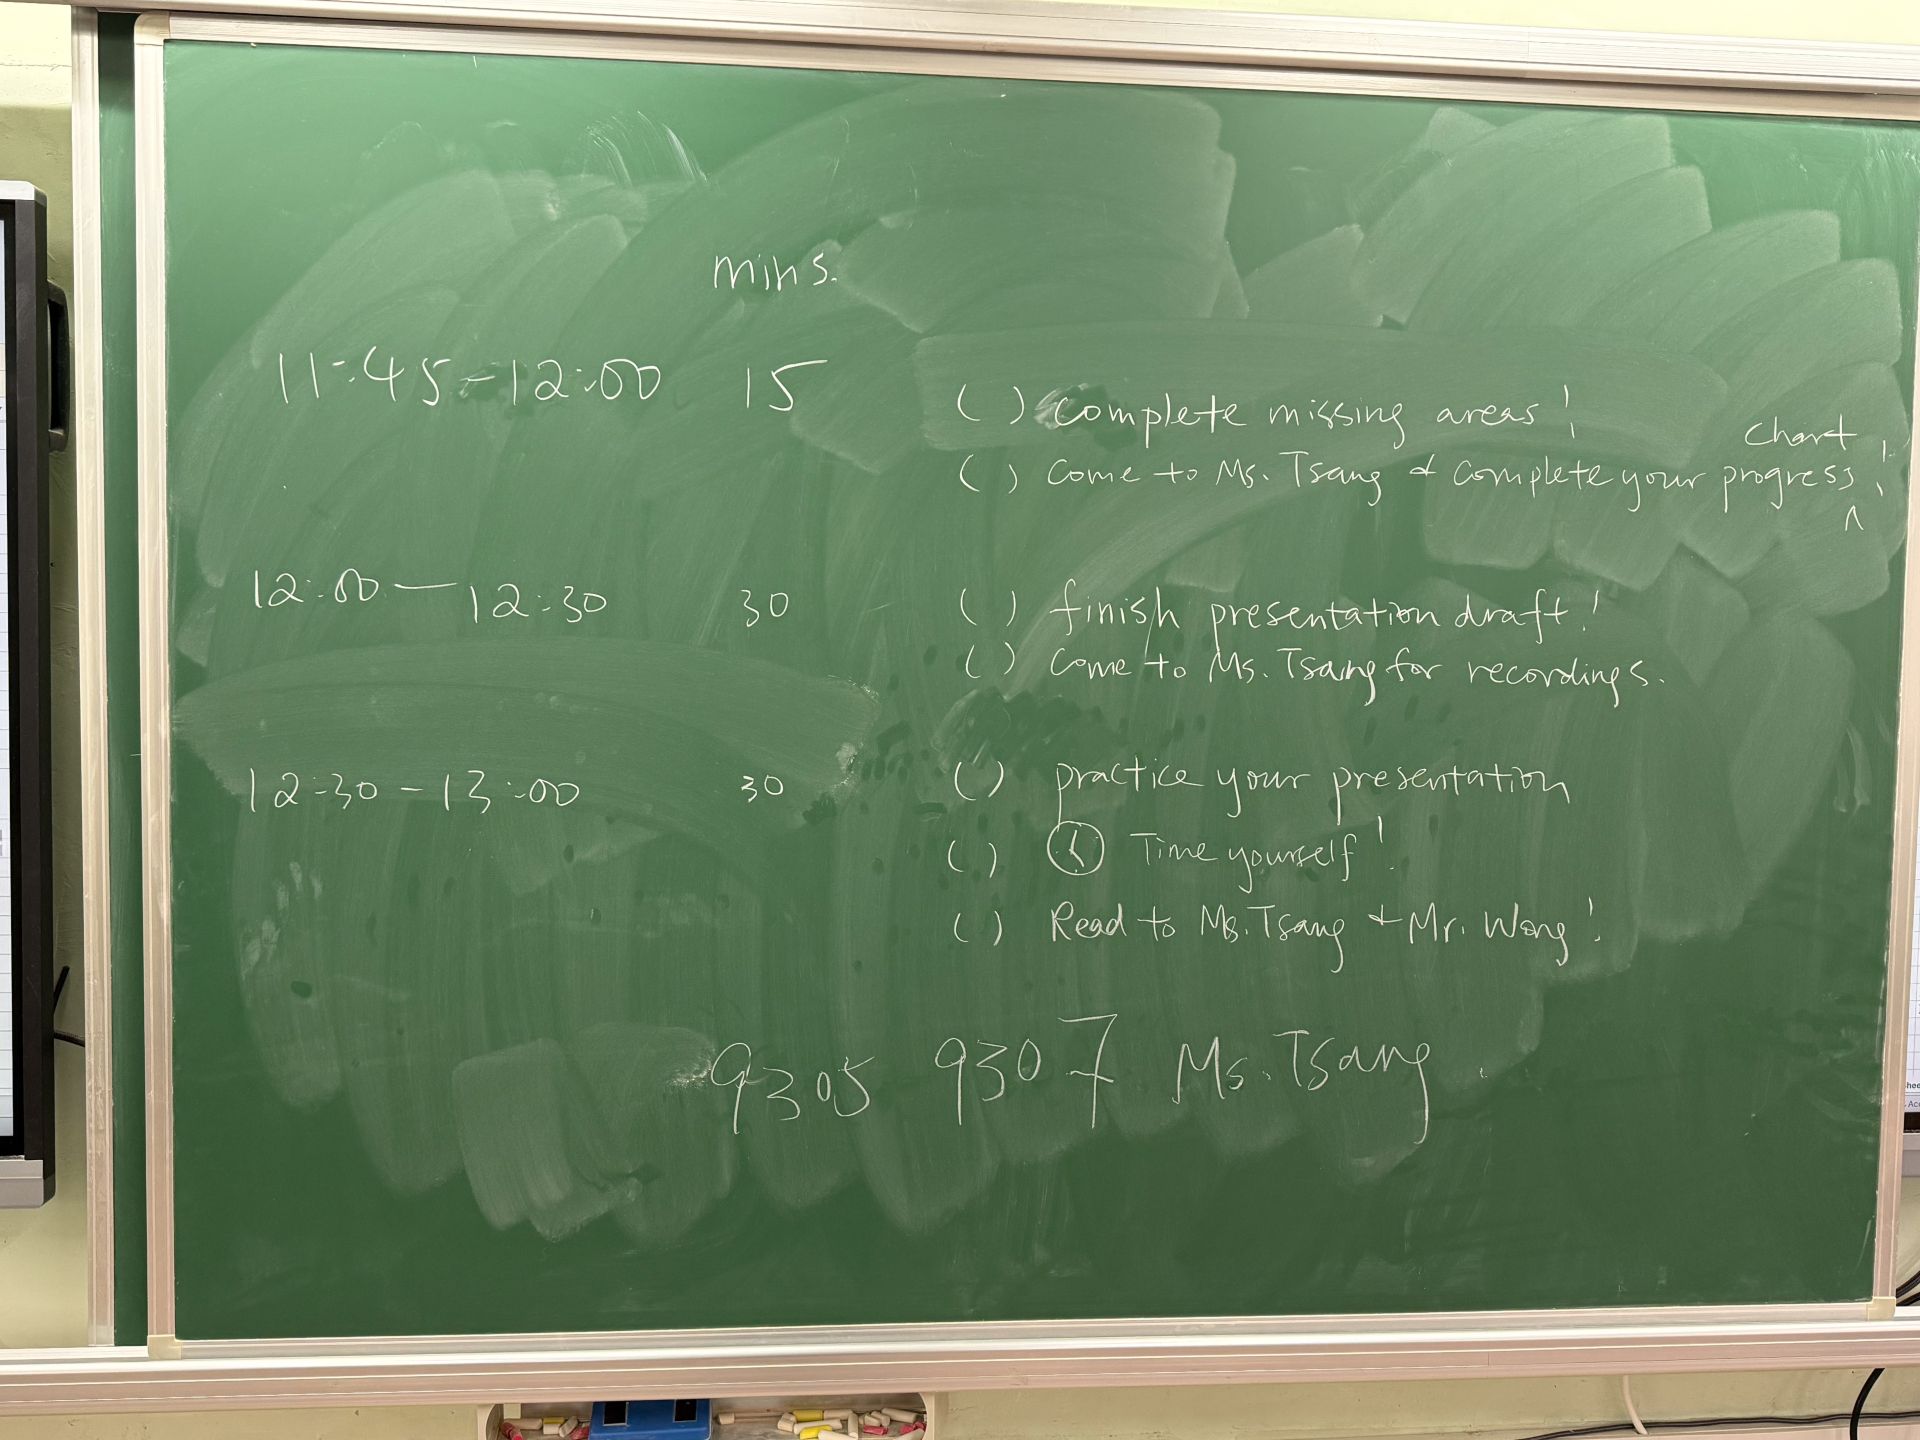 mins.
11:45-12:00 15 ( ) complete missing areas!
( ) Come to Ms. Tsang & complete your progress chart!
12:00 - 12:30 30 ( ) finish presentation draft!
( ) Come to Ms. Tsang for recordings.
12:30 - 13:00 30 ( ) practice your presentation
( ) Time yourself!
( ) Read to Ms. Tsang + Mr. Wong!
9305 9307 Ms. Tsang